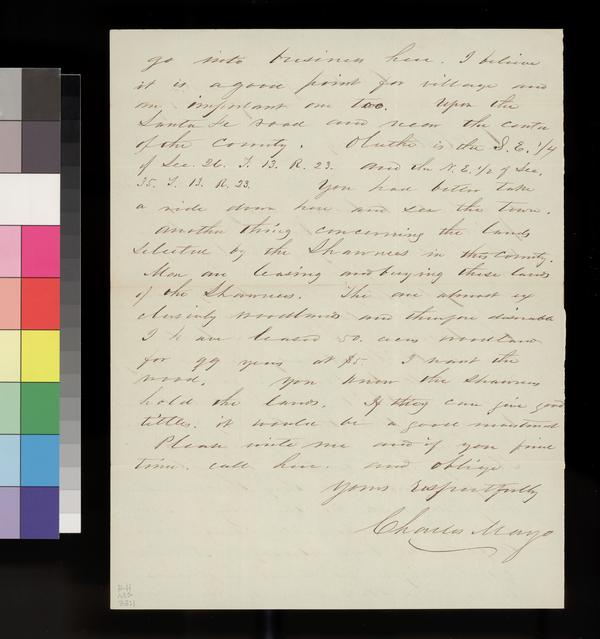 go into business here. I believe
it is a good point for village and
an important one too. Upon the
Santa Fe road and near the center
of the County. Olathe is the S.E. 1/4
of Sec. 26. T. 13. R. 23. and the N.E. 1/2 of Sec.
35. T. 13. R. 23. You had better take
a ride down here and see the town.
Another thing concerning the lands
selected by the Shawnees in this County.
Men are leasing and buying these lands
of the Shawnees. The are almost ex
clusively woodlands and therefore desirable
I have leased 50. acres woodland
for 99 years at $5. I want the
wood. You know the Shawnees
hold the lands. If they can give good
titles. it would be a good
Please write me and if you find
time. call here. and oblige
Yours Respectfully
Charles Mayo